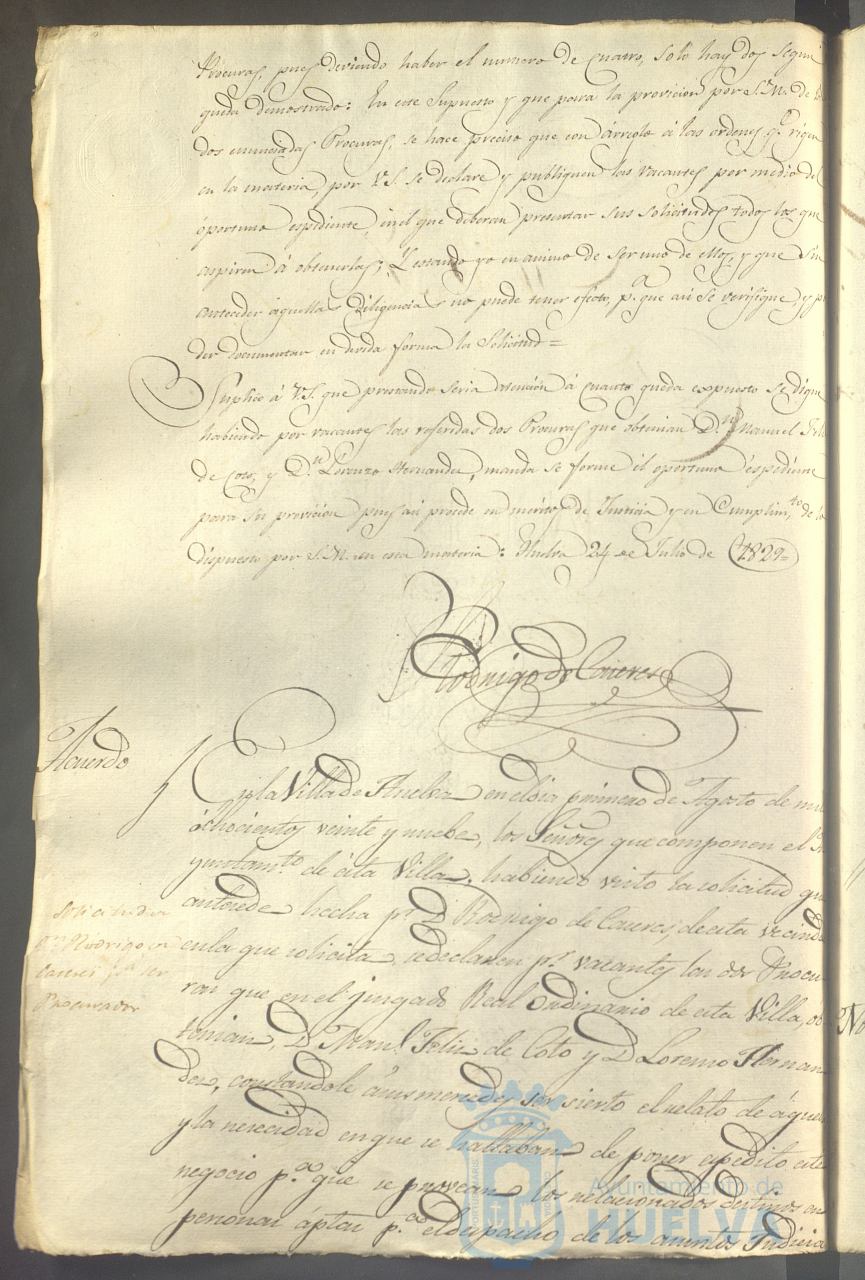 Procuras, pues deviendo haber el numero de Cuatro, solo hay dos segun
queda demostrado: En este Supuesto y que para la provicion por S.M. de
dos enunciadas Procuras, se hace preciso que con árreglo á las ordenes q.e rigen
en la materia, por V.S. se declare y publiquen las vacantes por medio del
óportuno espediente, en el que deberan presentar sus solicitudes todos los que
aspiren á obtenerlas; Y estando yo en animo de ser uno de ellos, y que sin
anteceder aquellas Diligencias no puede tener efecto, p.a que asi se verifique, y p
der documentar en devida forma la Solicitud=
Suplico á V.S. que prestando seria atencion á cuanto queda expuesto se digne
habiendo por vacantes las referidas dos Procuras que obtenian D.n Manuel Feli
de Coto, y D.n Lorenzo Hernandez, manda se forme él oportuno éspediente
para su provicion pues asi procede en merito de Justicia y en Cumplim.to de lo
dispuesto por S.M. en esta materia: Huelva 24 de Julio de 1829=
Rodrigo de Caceres
Acuerdo
En la Villa de Huelva en el dia primero de Agosto de mil
óchocientos veinte y nuebe, los Señores que componen el A
yuntam.to de ésta Villa, habiendo visto la solicitud que
antecede hecha p.r D. Rodrigo de Caceres, de esta vecind
en la que solicita, se declaren p.r vacantes las dos Procu-
ras que en el juzgado Real Ordinario de esta Villa, ob
tenian, D. Man.l Feliz de Coto y D. Lorenzo Hernan
dez, constandole á sus mercedes ser sierto el relato de áquel
y la nececidad en que se hallaban de poner espedito este
negocio p.a que se provean los relacionados destinos en
personas áptas p.a el despacho de los asuntos Judicia
Solicitud de
D.n Rodrigo de
Caceres p.a ser
Procurador
No
Ayuntamiento de
HUELVA